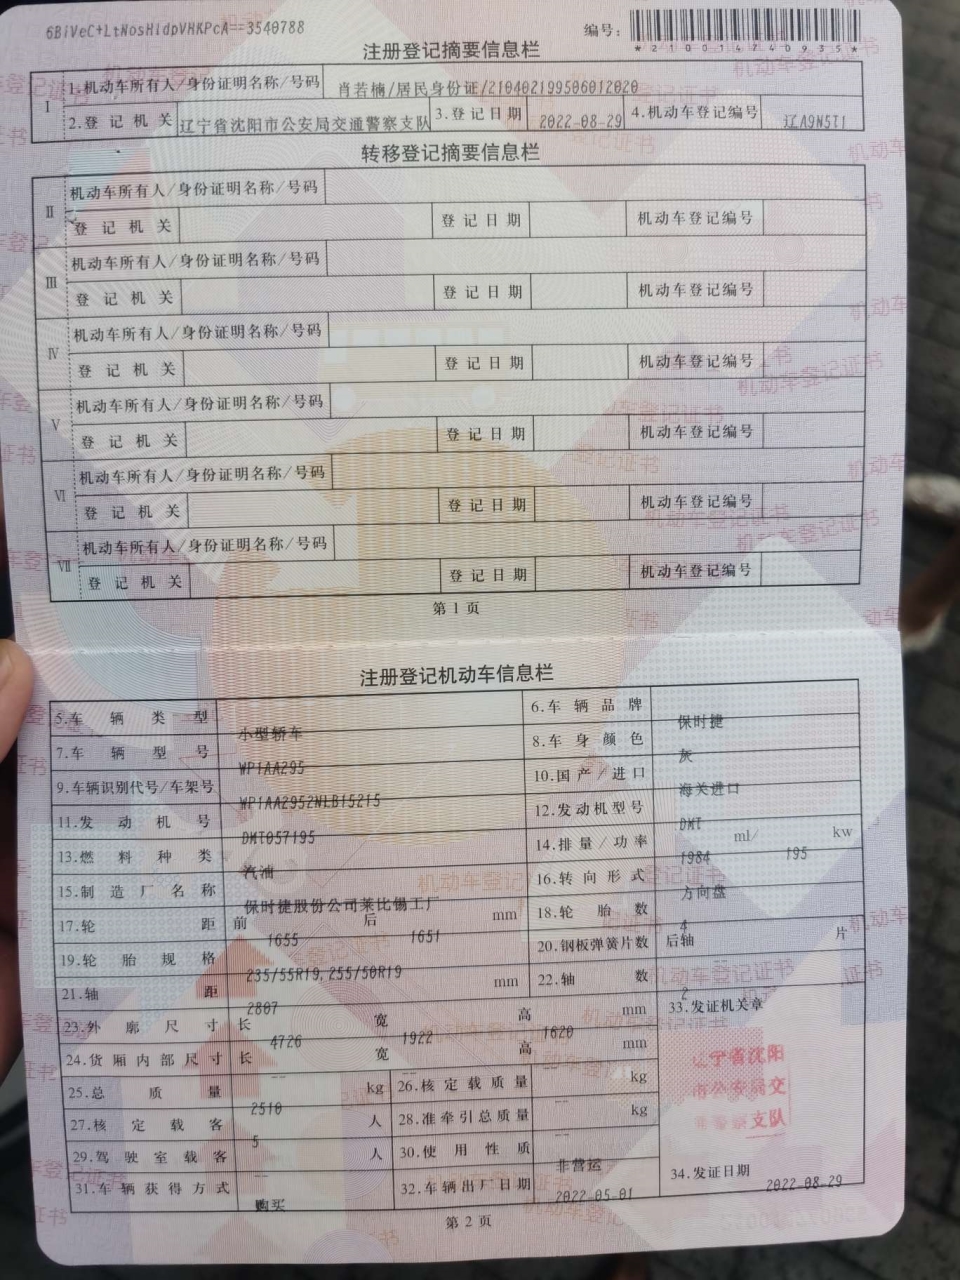 6BiVeC+LtNosHidpVHKPcA==3540788
编号：
*210014740935*
注册登记摘要信息栏
Ⅰ 1.机动车所有人/身份证明名称/号码 肖若楠/居民身份证/210402199506012020
2.登记机关 辽宁省沈阳市公安局交通警察支队 3.登记日期 2022-08-29 4.机动车登记编号 辽A9N5T1
转移登记摘要信息栏
Ⅱ 机动车所有人/身份证明名称/号码
登记机关 登记日期 机动车登记编号
Ⅲ 机动车所有人/身份证明名称/号码
登记机关 登记日期 机动车登记编号
Ⅳ 机动车所有人/身份证明名称/号码
登记机关 登记日期 机动车登记编号
Ⅴ 机动车所有人/身份证明名称/号码
登记机关 登记日期 机动车登记编号
Ⅵ 机动车所有人/身份证明名称/号码
登记机关 登记日期 机动车登记编号
Ⅶ 机动车所有人/身份证明名称/号码
登记机关 登记日期 机动车登记编号
第1页
注册登记机动车信息栏
5.车辆类型 小型轿车 6.车辆品牌 保时捷
7.车辆型号 WP1AA295 8.车身颜色 灰
9.车辆识别代号/车架号 WP1AA2952NLB15215 10.国产/进口 海关进口
11.发动机号 DMT057195 12.发动机型号 DMT
13.燃料种类 汽油 14.排量/功率 1984 ml/ 195 kw
15.制造厂名称 保时捷股份公司莱比锡工厂 16.转向形式 方向盘
17.轮距 前 1655 后 1651 mm 18.轮胎数 4
19.轮胎规格 235/55R19,255/50R19 20.钢板弹簧片数 后轴 -- 片
21.轴距 2807 mm 22.轴数 2
23.外廓尺寸 长 4726 宽 1922 高 1620 mm 33.发证机关章
24.货厢内部尺寸 长 -- 宽 -- 高 -- mm
25.总质量 2510 kg 26.核定载质量 -- kg
27.核定载客 5 人 28.准牵引总质量 -- kg
29.驾驶室载客 -- 人 30.使用性质 非营运
31.车辆获得方式 购买 32.车辆出厂日期 2022-05-01 34.发证日期 2022-08-29
辽宁省沈阳
市公安局交
通警察支队
第2页